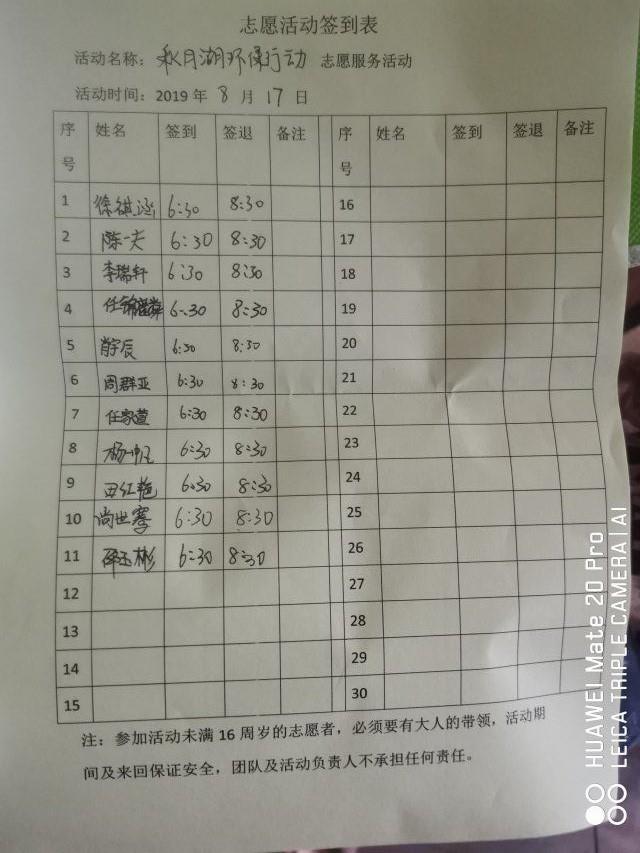 志愿活动签到表
活动名称：秋月湖环保行动 志愿服务活动
活动时间：2019 年 8 月 17 日
序号 姓名 签到 签退 备注 序号 姓名 签到 签退 备注
1 徐祺涵 6:30 8:30 16
2 陈一夫 6:30 8:30 17
3 李瑞轩 6:30 8:30 18
4 任 6:30 8:30 19
5 肖宇辰 6:30 8:30 20
6 周群亚 6:30 8:30 21
7 任家萱 6:30 8:30 22
8 杨 6:30 8:30 23
9 田红艳 6:30 8:30 24
10 尚世騫 6:30 8:30 25
11 邵玉彬 6:30 8:30 26
12 27
13 28
14 29
15 30
注：参加活动未满 16 周岁的志愿者，必须要有大人的带领，活动期
间及来回保证安全，团队及活动负责人不承担任何责任。
HUAWEI Mate 20 Pro
LEICA TRIPLE CAMERA | AI